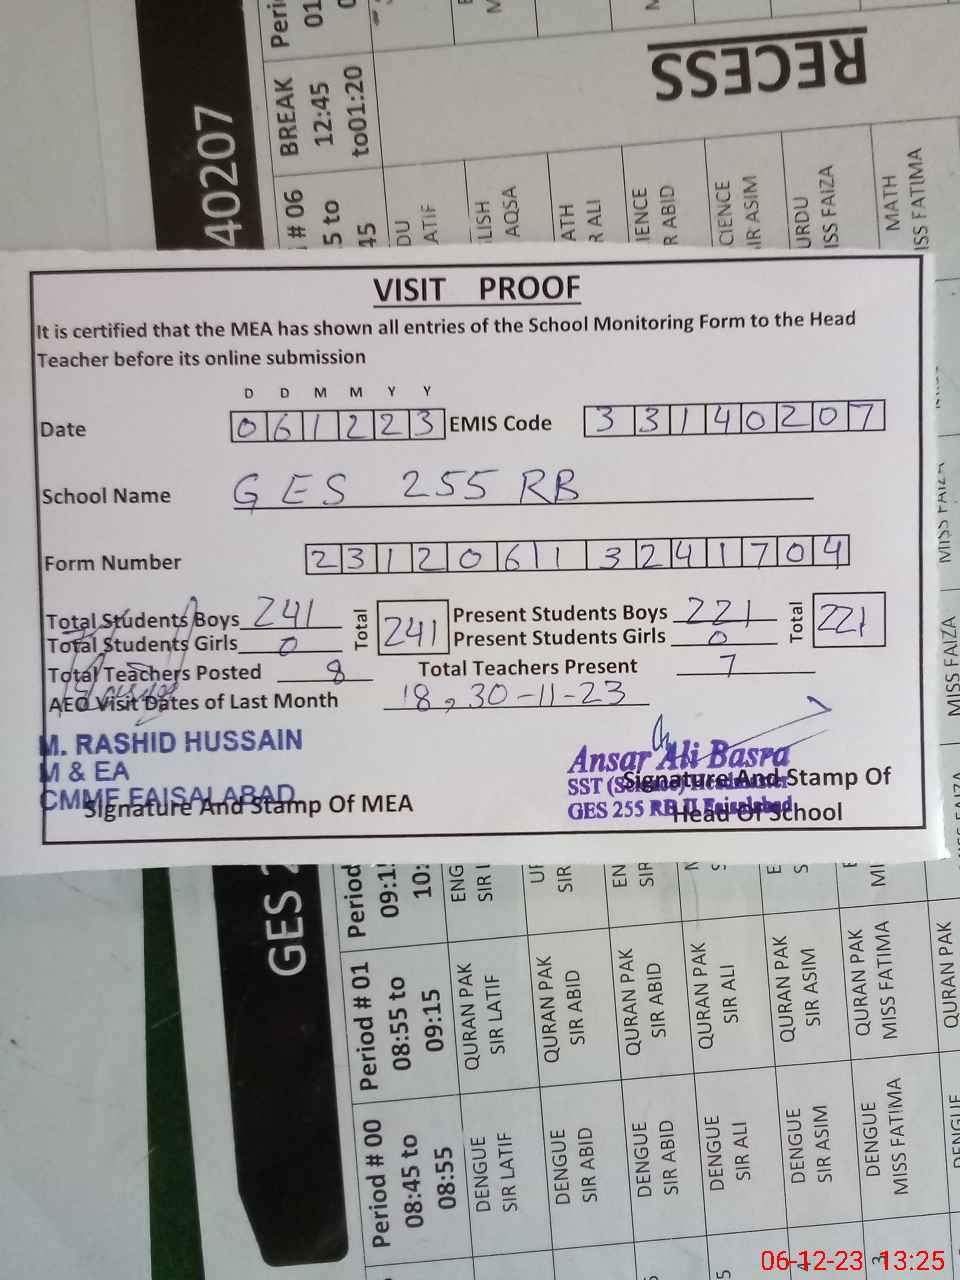 VISIT PROOF
It is certified that the MEA has shown all entries of the School Monitoring Form to the Head
Teacher before its online submission
D D M M Y Y
Date 061223 EMIS Code 33140207
School Name GES 255 RB
Form Number 231206113241704
Total Students Boys 241 Total 241 Present Students Boys 221 Total 221
Total Students Girls 0 Present Students Girls 0
Total Teachers Posted 8 Total Teachers Present 7
AEO Visit Dates of Last Month 18, 30-11-23
M. RASHID HUSSAIN
M & EA
CMMF FAISALABAD
Signature And Stamp Of MEA
Ansar Ali Basra
SST (Science) Headmaster
GES 255 RB II Faisalabad
Signature And Stamp Of
Head Of School
40207
RECESS
BREAK
12:45
to01:20
# 06
5 to
45
Peri
01
DU
ATIF
LISH
AQSA
ATH
R ALI
IENCE
R ABID
CIENCE
IR ASIM
URDU
ISS FAIZA
MATH
ISS FATIMA
MISS FAIZA
MISS FAIZA
GES 2
Period
09:1
10:
ENG
SIR
SIR
EN
SIR
Period # 01
08:55 to
09:15
QURAN PAK
SIR LATIF
QURAN PAK
SIR ABID
QURAN PAK
SIR ABID
QURAN PAK
SIR ALI
QURAN PAK
SIR ASIM
QURAN PAK
MISS FATIMA
QURAN PAK
Period # 00
08:45 to
08:55
DENGUE
SIR LATIF
DENGUE
SIR ABID
DENGUE
SIR ABID
DENGUE
SIR ALI
DENGUE
SIR ASIM
DENGUE
MISS FATIMA
DENGUE
06-12-23 13:25